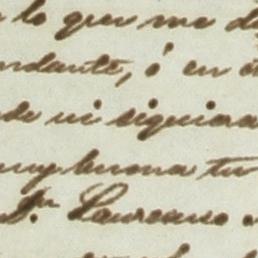 lo que me d
ndante, ó en e
de ni siquiera
muy buena tu
Dn Laureano